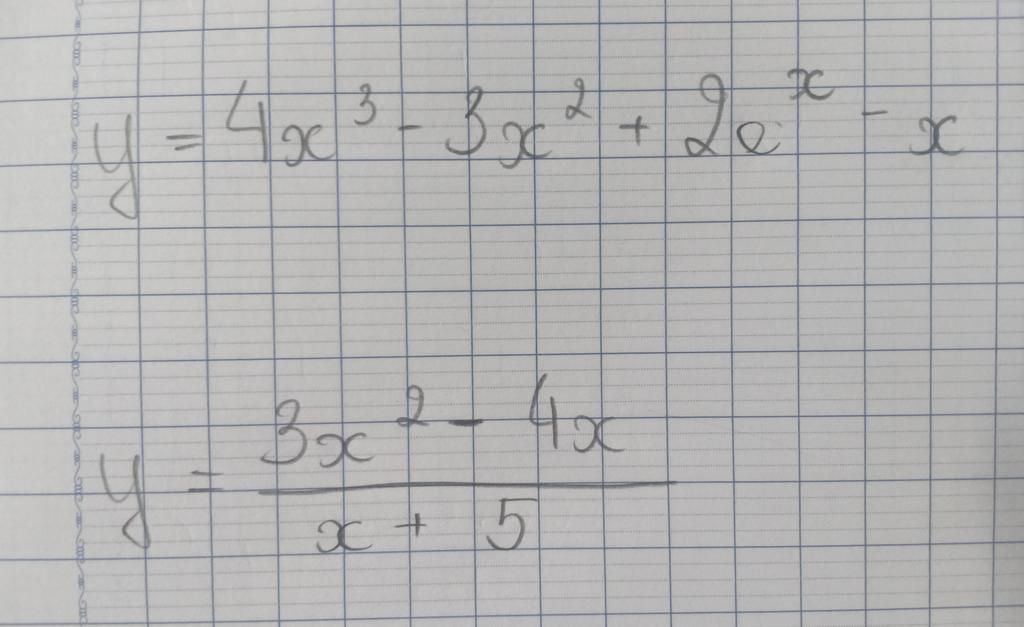 y = 4x³ - 3x² + 2eˣ - x
y = (3x² - 4x)/(x + 5)